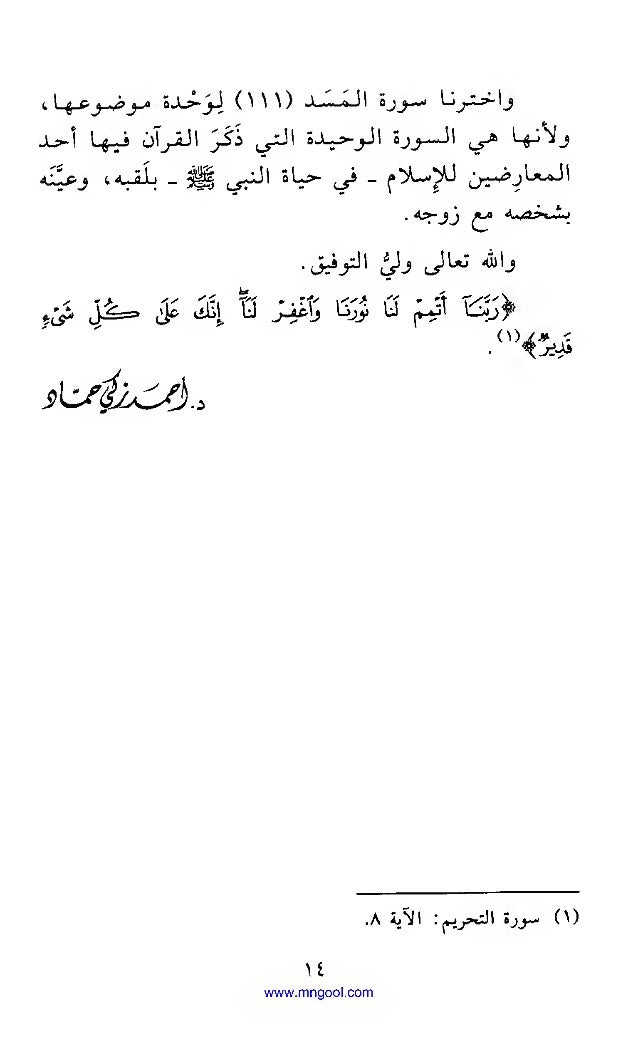 واخترنا سورة المَسَد (١١١) لِوَحْدة موضوعها،
ولأنها هي السورة الوحيدة التي ذَكَرَ القرآن فيها أحد
المعارِضين للإسلام - في حياة النبي ﷺ - بلَقبه، وعيَّنَه
بشخصه مع زوجه.
والله تعالى وليُّ التوفيق.
﴿رَبَّنَآ أَتْمِمْ لَنَا نُورَنَا وَٱغْفِرْ لَنَآۖ إِنَّكَ عَلَىٰ كُلِّ شَىْءٍ
قَدِيرٌ﴾(١).
د. أحمد زكي حماد
(١) سورة التحريم: الآية ٨.
١٤
www.mngool.com